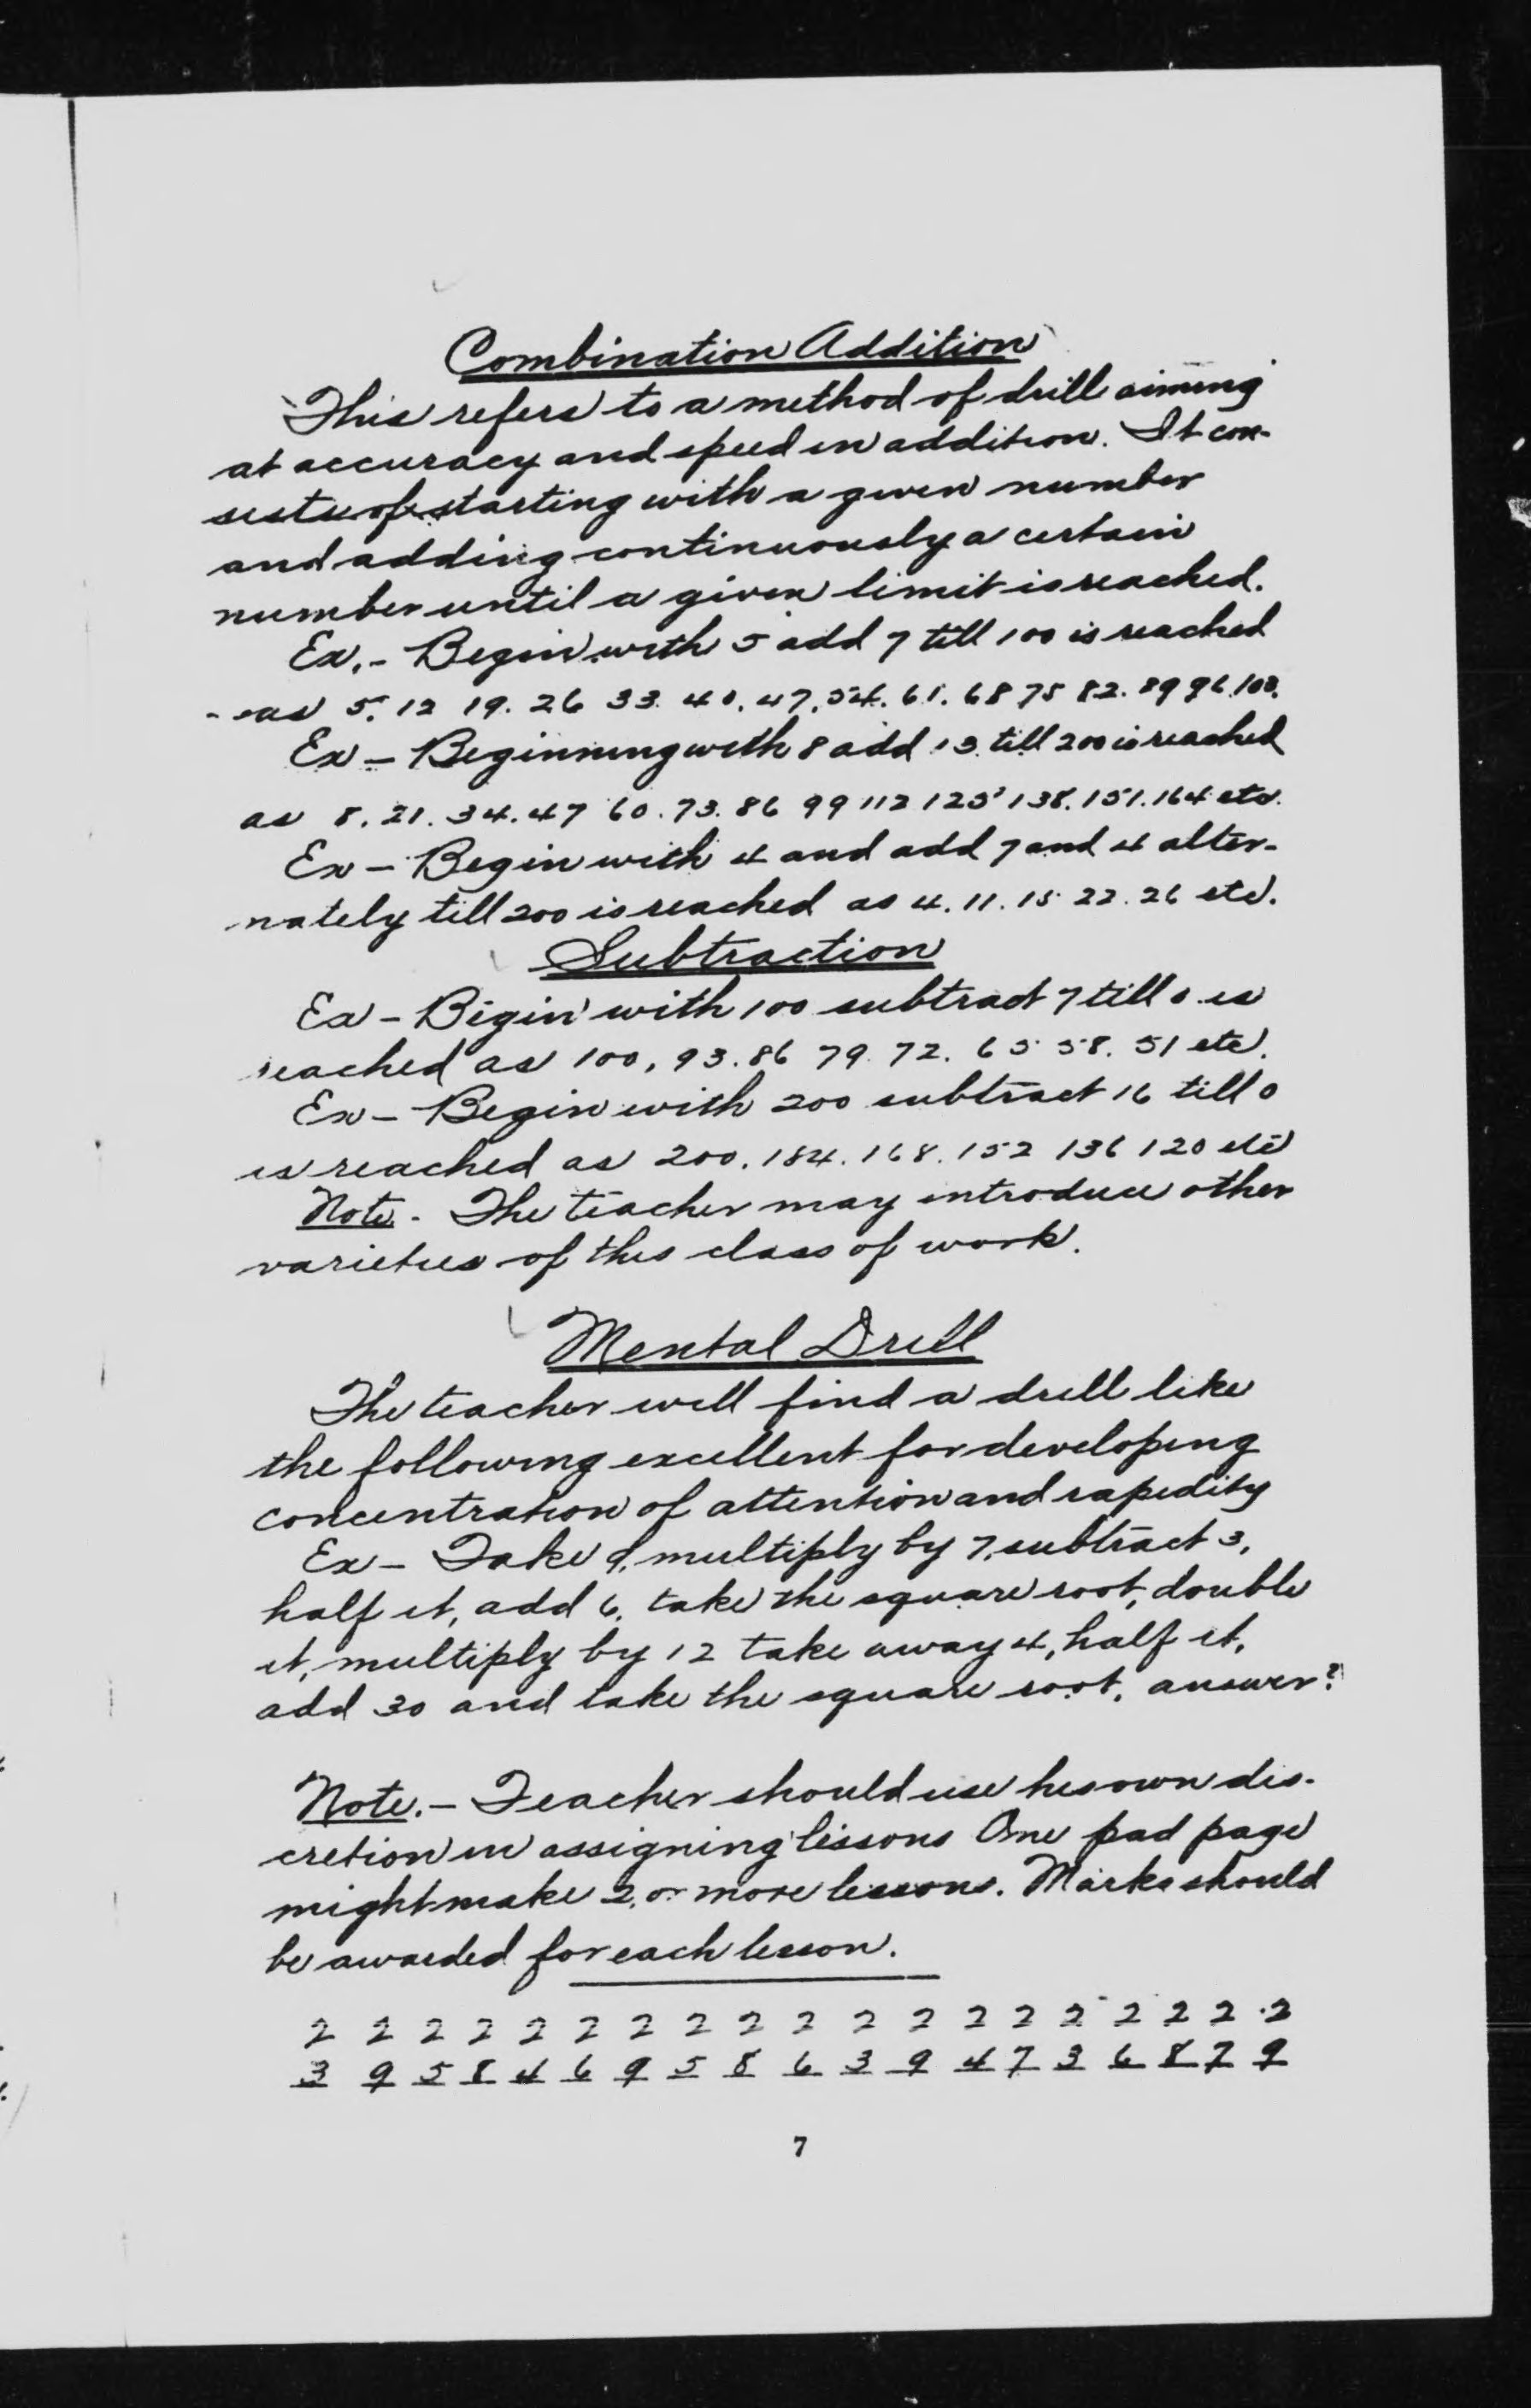 Combination Addition
This refers to a method of drill aiming
at accuracy and speed in addition. It con-
sists of starting with a given number
and adding continuously a certain
number until a given limit is reached.
Ex. - Begin with 5 add 7 till 100 is reached
as 5. 12 19. 26 33. 40. 47. 54. 61. 68 75 82. 89 96. 103.
Ex - Beginning with 8 add 13 till 200 is reached
as 8. 21. 34. 47 60. 73. 86 99 112 125 138. 151. 164 etc.
Ex - Begin with 4 and add 7 and 4 alter-
nately till 200 is reached as 4. 11. 15 22. 26 etc.
Subtraction
Ex - Begin with 100 subtract 7 till 0 is
reached as 100, 93. 86 79. 72. 65 58. 51 etc.
Ex - Begin with 200 subtract 16 till 0
is reached as 200. 184. 168. 152 136 120 etc
Note - The teacher may introduce other
varieties of this class of work.
Mental Drill
The teacher will find a drill like
the following excellent for developing
concentration of attention and rapidity
Ex - Take 9, multiply by 7, subtract 3,
half it, add 6, take the square root, double
it, multiply by 12 take away 4, half it,
add 30 and take the square root, answer?
Note. - Teacher should use his own dis-
cretion in assigning lessons One pad page
might make 2 or more lessons. Marks should
be awarded for each lesson.
2 2 2 2 2 2 2 2 2 2 2 2 2 2 2 2 2 2 2
3 9 5 8 4 6 9 5 8 6 3 9 4 7 3 6 8 7 9
7